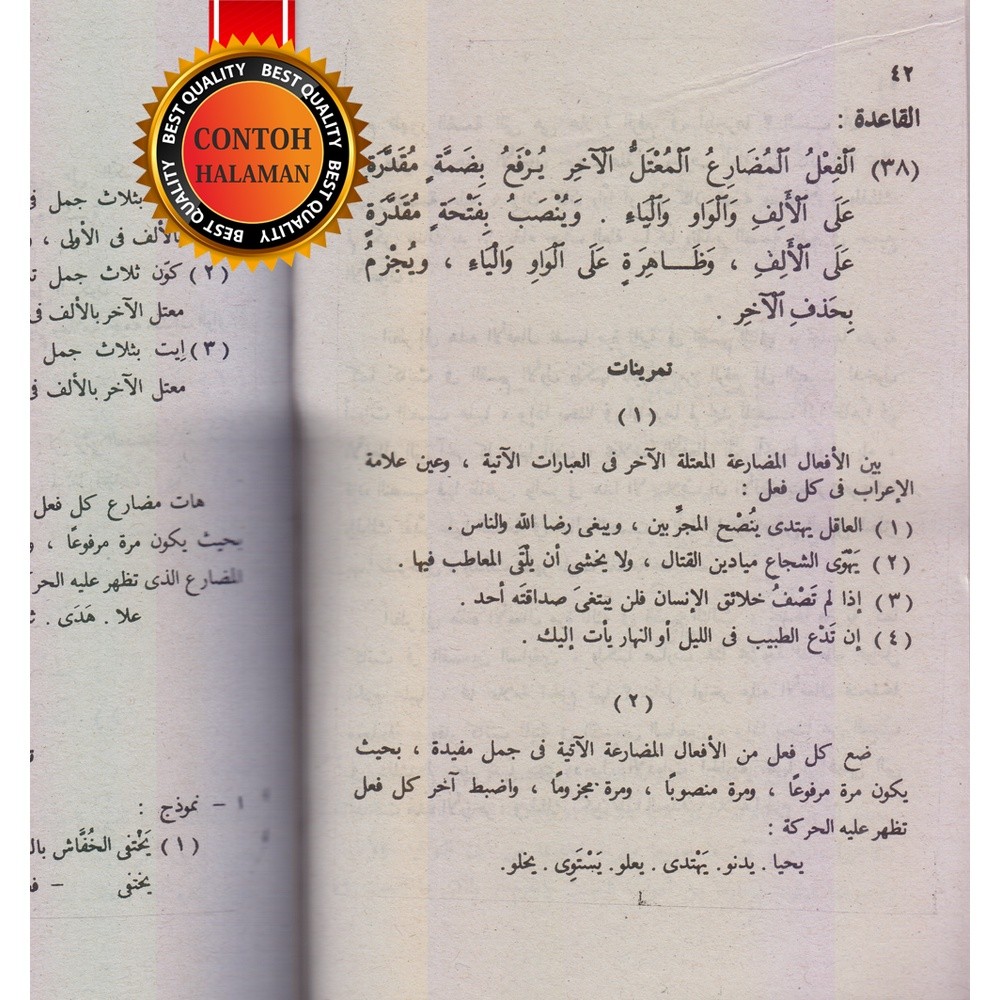 BEST QUALITY BEST QUALITY BEST QUALITY BEST QUALITY
CONTOH
HALAMAN
٤٢
القاعدة :
(٣٨) اَلْفِعْلُ الْمُضَارِعُ الْمُعْتَلُّ الْآخِرِ يُرْفَعُ بِضَمَّةٍ مُقَدَّرَةٍ
عَلَى الْأَلِفِ وَالْوَاوِ وَالْيَاءِ . وَيُنْصَبُ بِفَتْحَةٍ مُقَدَّرَةٍ
عَلَى الْأَلِفِ ، وَظَاهِرَةٍ عَلَى الْوَاوِ وَالْيَاءِ ، وَيُجْزَمُ
بِحَذفِ الْآخِرِ .
تمرينات
(١)
بين الأفعال المضارعة المعتلة الآخر فى العبارات الآتية ، وعين علامة
الإعراب فى كل فعل :
(١) العاقل يهتدى بنُصْح المجرّبين ، ويبغى رضا الله والناس .
(٢) يَهْوَى الشجاع ميادين القتال ، ولا يخشى أن يلْقَى المعاطب فيها .
(٣) إذا لم تَصْفُ خلائق الإنسان فلن يبتغىَ صداقتَه أحد .
(٤) إن تَدْع الطبيب فى الليل أو النهار يأت إليك .
(٢)
ضع كل فعل من الأفعال المضارعة الآتية فى جمل مفيدة ، بحيث
يكون مرة مرفوعًا ، ومرة منصوباً ، ومرة مجزومًا ، واضبط آخر كل فعل
تظهر عليه الحركة :
يحيا . يدنو . يَهْتدى . يعلو . يَسْتَوِى . يخلو .
بثلاث جمل
بالألف فى الأولى ،
(٢) كوّن ثلاث جمل
معتل الآخر بالألف فى
(٣) إيت بثلاث جمل
معتل الآخر بالألف فى
هات مضارع كل فعل
بحيث يكون مرة مرفوعًا ،
المضارع الذى تظهر عليه
علا . هَدَى .
١ - نموذج :
(١) يَخْتفى الخُفَّاش
يختفى –